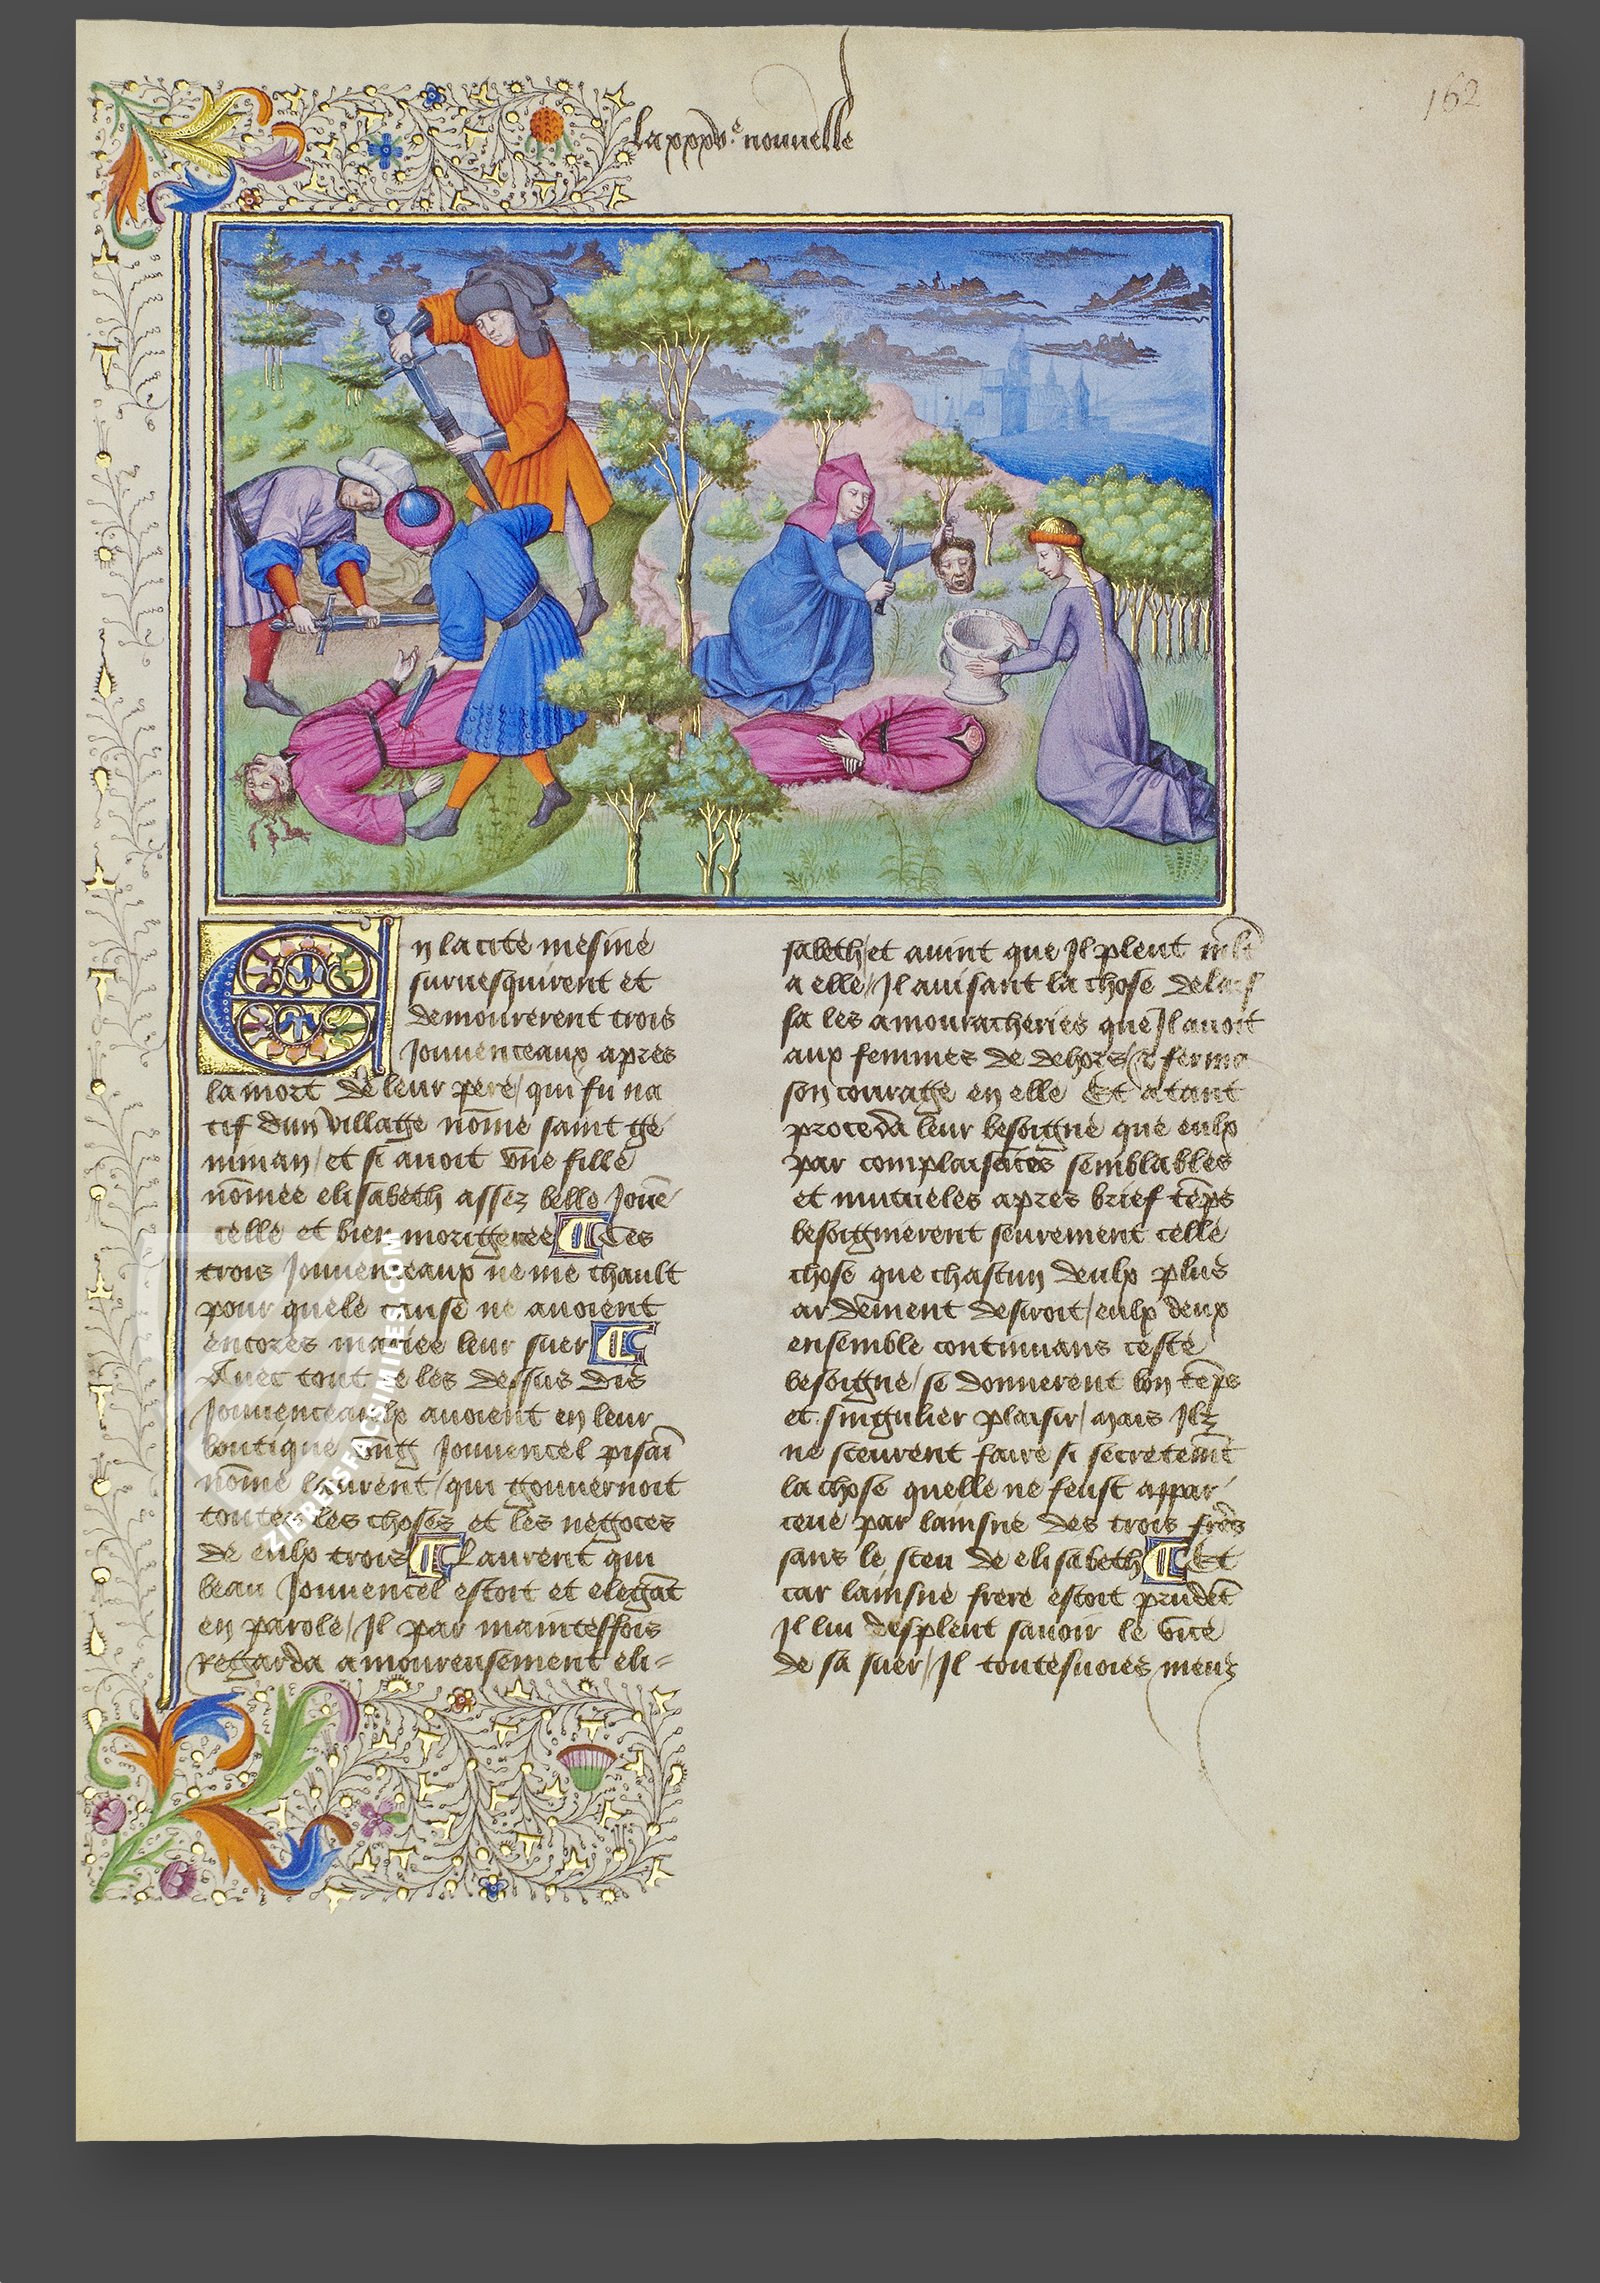 162
la xxxve nouuelle
En la cite mesine
suruesquirent et
demourerent trois
Jouuenceaux apres
la mort de leur pere / qui fu na
tif dun village nōme saint ge
minian / et si auoit vne fille
nōmee elisabeth assez belle Jouē
celle et bien morigeree Ces
trois Jouuenceaux ne me chault
pour quele cause ne auoient
encores mariee leur suer
Auec tout ce les dessus dis
Jouuenceaulx auoient en leur
boutique vng Jouuencel pisaī
nōme laurent / qui gouuernoit
toutes les choses et les negoces
de eulx trois Laurent qui
beau Jouuencel estoit et elegāt
en parole / Il par maintesffois
regarda amoureusement eli=
sabeth / et auint que Il pleut
a elle / Il auisant la chose delais
sa les amouracheries que Il auoit
aux femmes de dehors / & ferma
son courage en elle Et a tant
proceda leur besoigne que eulx
par complaisāces semblables
et mutueles apres brief tēps
besoignierent seurement celle
chose que chascun deulx plus
ardēment desiroit / eulx deux
ensemble continuans ceste
besoigne / se donnerent bon tēps
et singulier plaisir / mais Ilz
ne sceurent faire si secretemēt
la chose quelle ne feust appar
ceue par lainsne des trois frēs
sans le sceu de elisabeth Et
car lainsne frere estoit prudēt
Il lui despleut sauoir le vice
de sa suer / Il toutesuoies meuz
ZIEREISFACSIMILES.COM